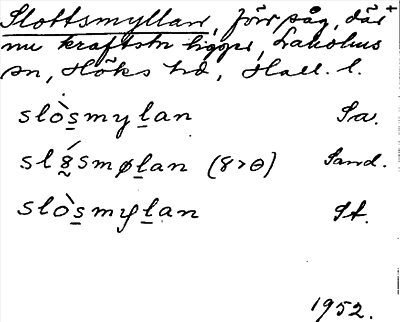 Slottsmyllan, förr såg, där +
nu kraftstn ligger, Laholms
sn, Höks hd, Hall. l.
slòs̲myl̲an Sa.
sl8́smøl̲an (8>ɵ) Sand.
slòs̲myl̲an St.
1952.